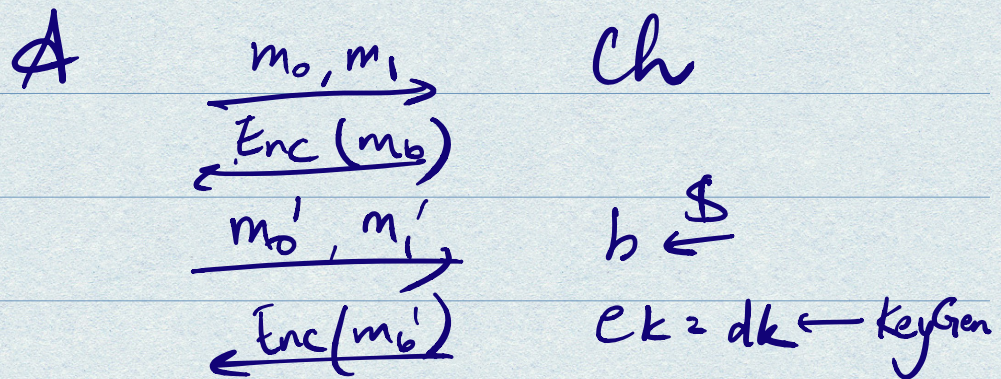 A
m₀, m₁
Ch
Enc (m_b)
m₀', m₁'
b <-$-
Enc(m_b')
ek = dk ← KeyGen